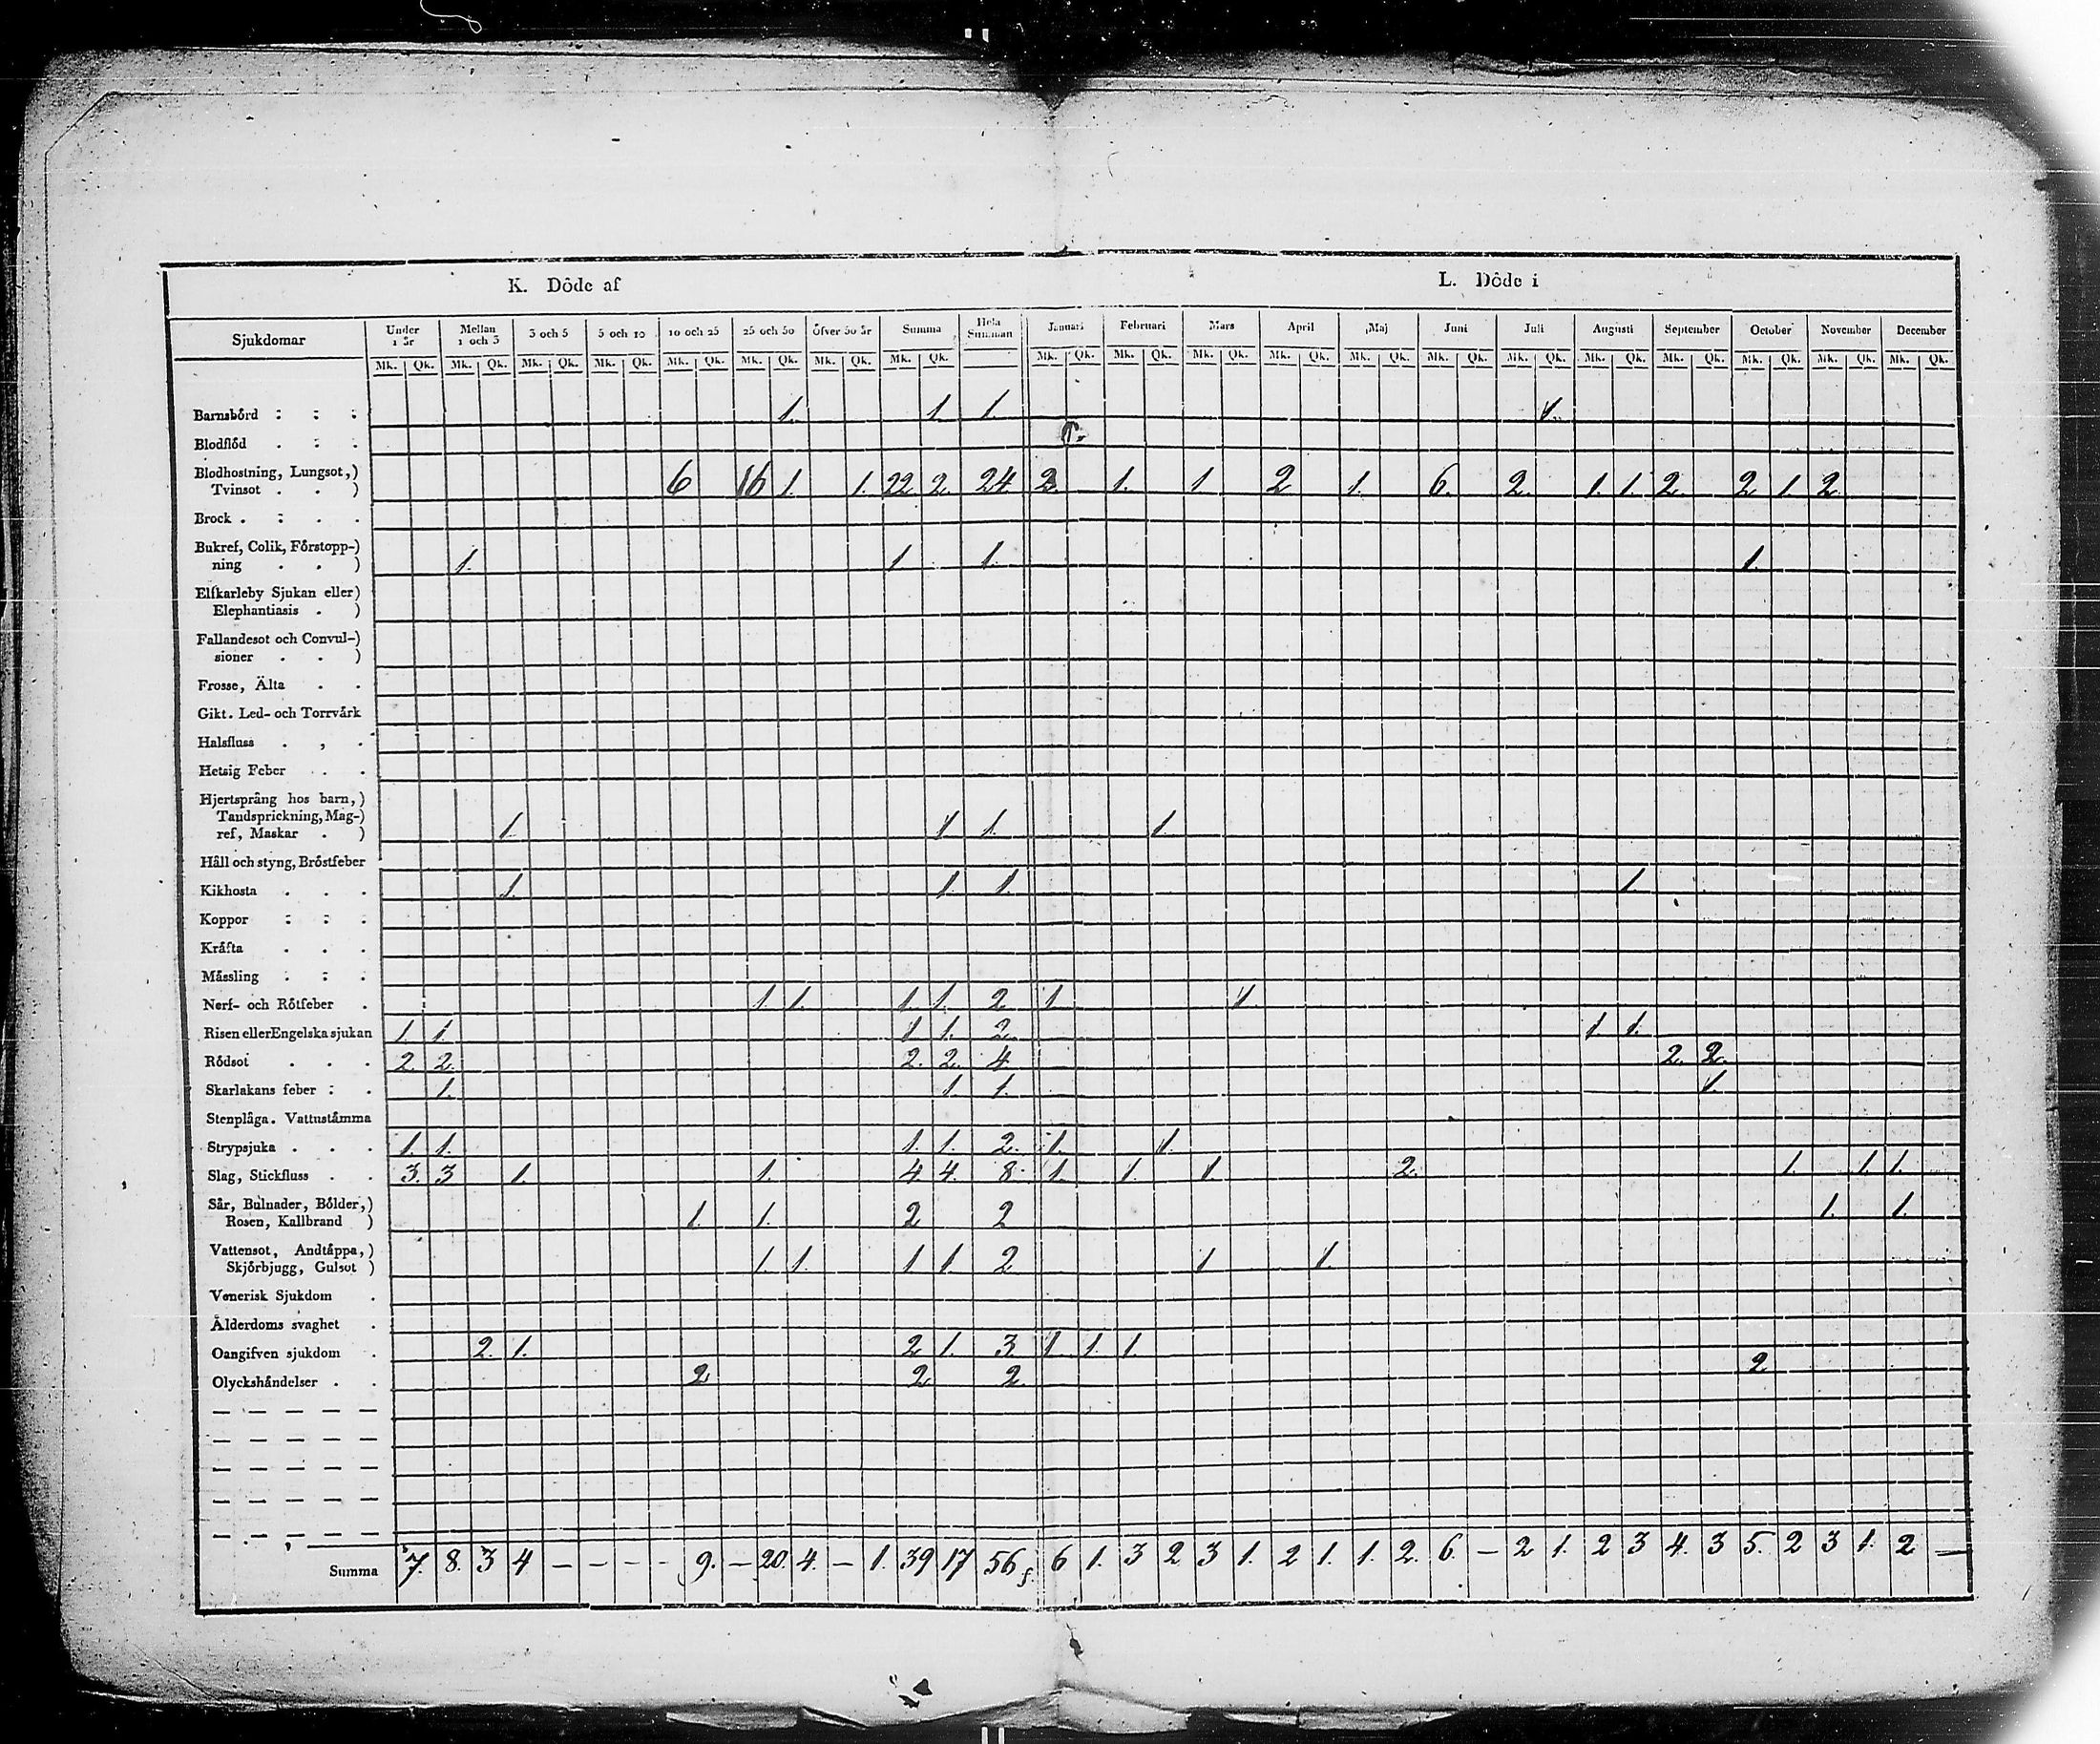 K. Dôde af L. Dôde i
Sjukdomar Under 1 år Mellan 1 och 3 3 och 5 5 och 10 10 och 25 25 och 50 öfver 50 år Summa Hela Summan Januari Februari Mars April Maj Juni Juli Augusti September October November December
Mk. Qk. Mk. Qk. Mk. Qk. Mk. Qk. Mk. Qk. Mk. Qk. Mk. Qk. Mk. Qk. Mk. Qk. Mk. Qk. Mk. Qk. Mk. Qk. Mk. Qk. Mk. Qk. Mk. Qk. Mk. Qk. Mk. Qk. Mk. Qk. Mk. Qk. Mk. Qk.
Barnsbörd 1. 1. 1. 1.
Blodflöd
Blodhostning, Lungsot,)
Tvinsot . . ) 6 16 1. 1. 22 2. 24 2. 1. 1 2 1. 6. 2. 1. 1. 2. 2 1 2
Brock
Bukref, Colik, Förstopp-)
ning . . ) 1. 1 1. 1.
Elfkarleby Sjukan eller)
Elephantiasis . )
Fallandesot och Convul-)
sioner . . )
Frosse, Älta
Gikt. Led- och Torrvärk
Halsfluss
Hetsig Feber
Hjertsprång hos barn,)
Tandsprickning, Mag-)
ref, Maskar . ) 1. 1 1. 1.
Håll och styng, Bröstfeber
Kikhosta 1. 1. 1. 1.
Koppor
Kräfta
Mässling
Nerf- och Rötfeber 1. 1. 1. 1. 2 1. 1
Risen eller Engelska sjukan 1. 1. 1. 1. 2. 1. 1.
Rödsot 2. 2. 2. 2. 4. 2. 2.
Skarlakans feber 1. 1. 1. 1.
Stenplåga. Vattustämma
Strypsjuka 1. 1. 1. 1. 2. 1. 1.
Slag, Stickfluss 3. 3 1. 1. 4 4. 8. 1. 1. 1. 2. 1. 1. 1.
Sår, Bulnader, Bölder,)
Rosen, Kallbrand ) 1. 1. 2 2 1. 1.
Vattensot, Andtäppa,)
Skjörbjugg, Gulsot ) 1. 1. 1 1. 2 1 1.
Venerisk Sjukdom
Ålderdoms svaghet
Oangifven sjukdom 2. 1. 2 1. 3 1. 1. 1.
Olyckshändelser 2 2 2. 2
Summa 7. 8. 3 4 – – – – 9. – 20. 4. – 1. 39 17 56 6 1. 3 2 3 1. 2 1. 1. 2. 6. – 2 1. 2 3 4. 3 5. 2 3 1. 2 –